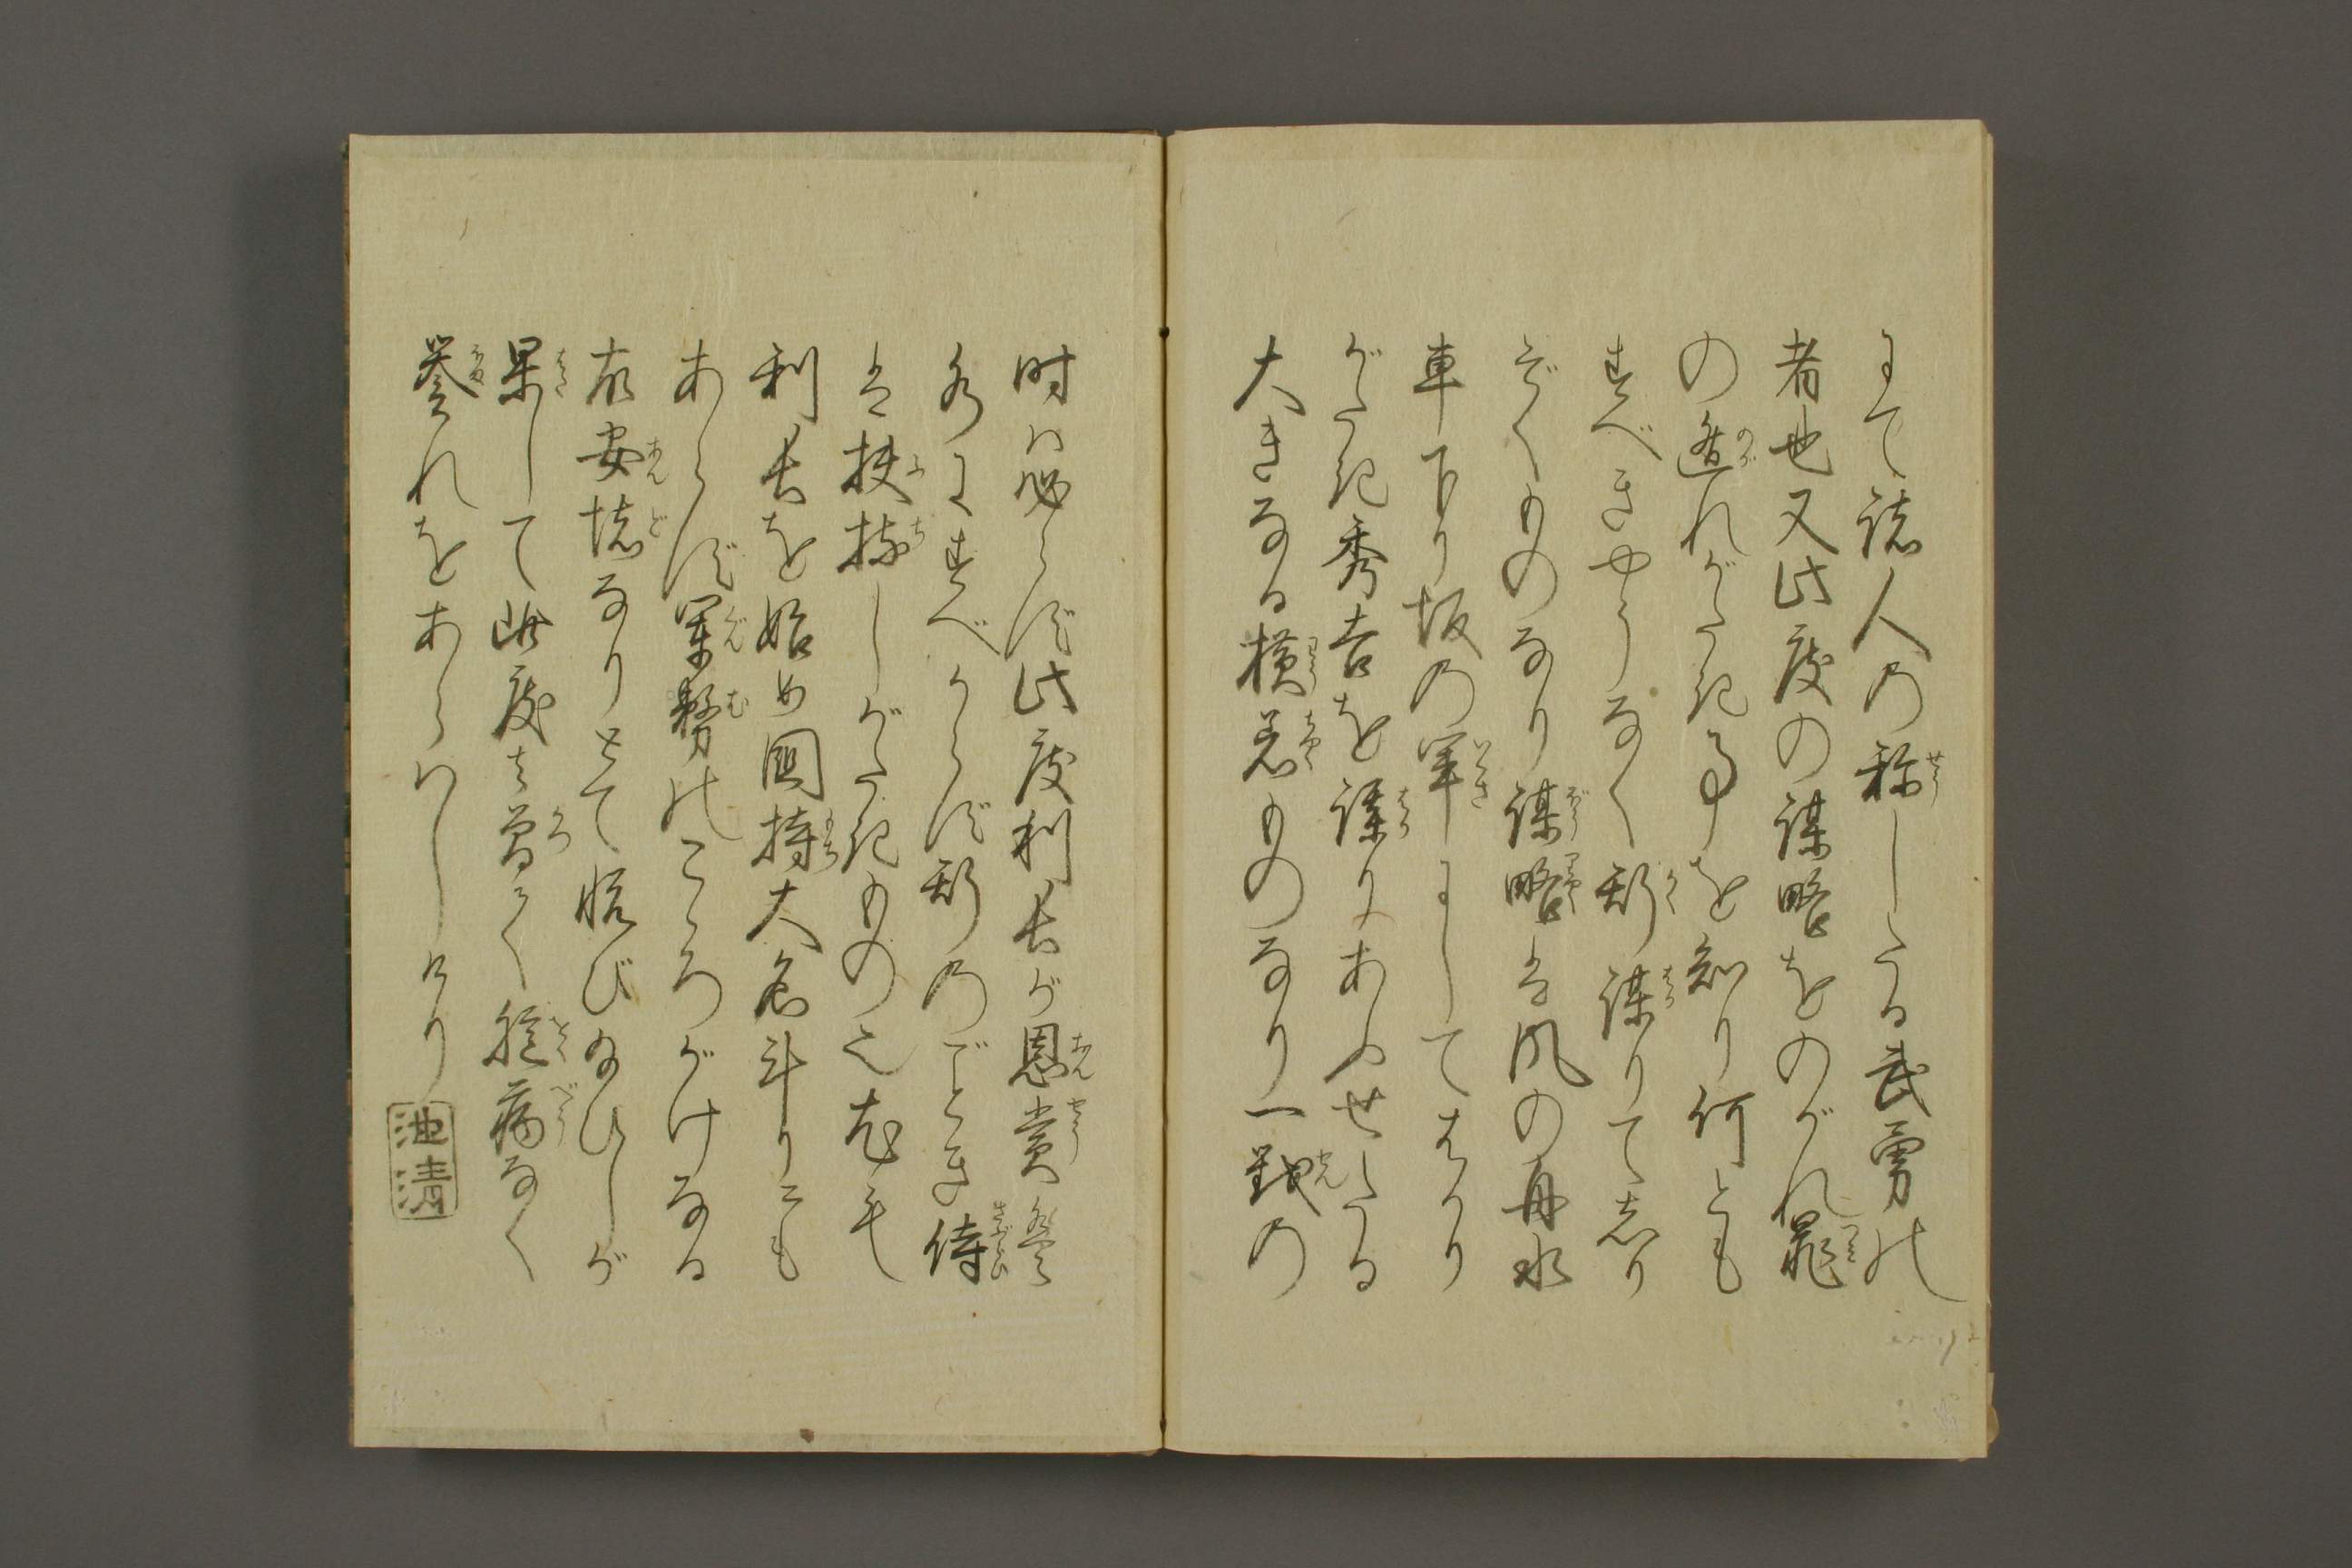 にて諸人の称したる武勇の
者也又此度の謀略をのがれ罪
の遁れがたき事を知り何とも
すべきやうなく斯謀りてしり
ぞくものなり謀略は風の舟水
車下り坂の軍にしてはかり
がたき秀吉を謀りあふせたる
大きなる横着ものなり一戦の
時は必らず此度利長が恩賞
なにすべからず斯のごとき侍
は扶持しがたきもの也
利長を始め国持大名斗りにも
あらず軍勢のこころがけなる
安堵なりとて悦び給ひしが
果して此度は曽て臆病なく
誉れをあらはしけり
池清